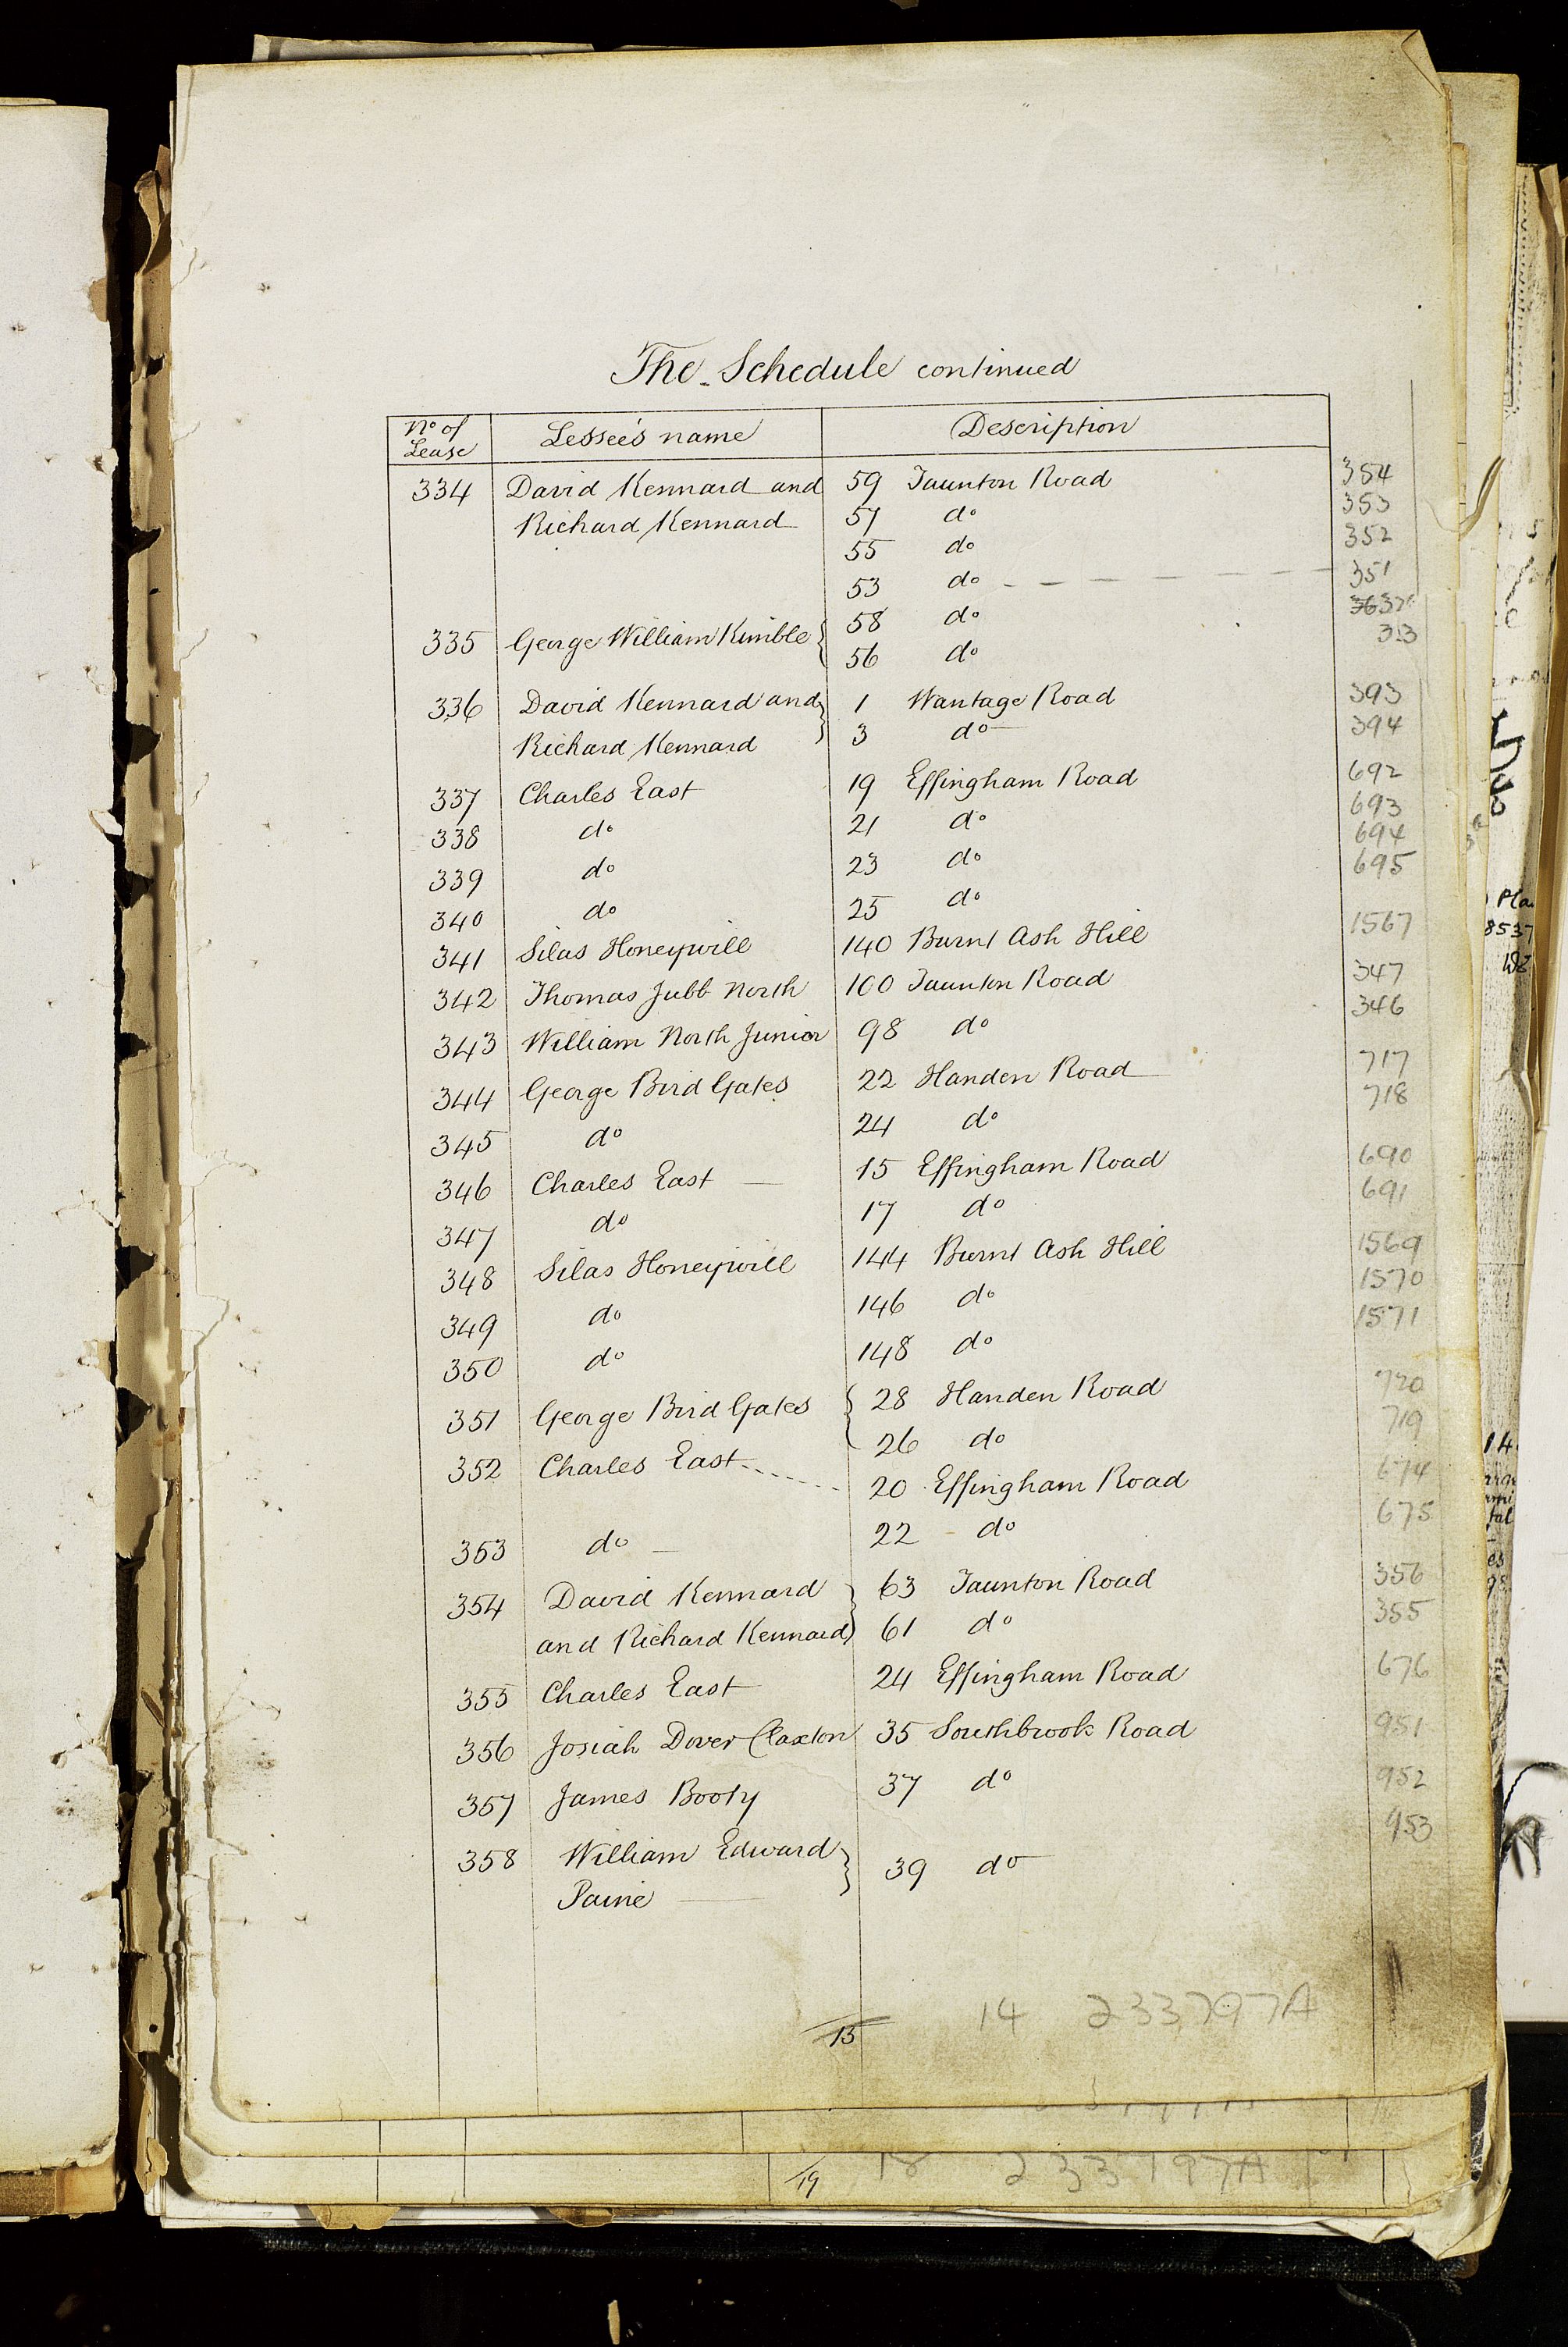 The Schedule continued
No of Lease Lessee's name Description
334 David Kennard and 59 Taunton Road 354
Richard Kennard 57 do 353
55 do 352
53 do 351
335 George William Kimble 58 do
56 do
336 David Kennard and 1 Wantage Road 393
Richard Kennard 3 do 394
337 Charles East 19 Effingham Road 692
338 do 21 do 693
339 do 23 do 694
340 do 25 do 695
341 Silas Honeywill 140 Burnt Ash Hill 1567
342 Thomas Jubb North 100 Taunton Road 347
343 William North Junior 98 do 346
344 George Bird Gates 22 Handen Road 717
345 do 24 do 718
346 Charles East 15 Effingham Road 690
347 do 17 do 691
348 Silas Honeywill 144 Burnt Ash Hill 1569
349 do 146 do 1570
350 do 148 do 1571
351 George Bird Gates 28 Handen Road 720
26 do 719
352 Charles East 20 Effingham Road 674
353 do 22 do 675
354 David Kennard 63 Taunton Road 356
and Richard Kennard 61 do 355
355 Charles East 24 Effingham Road 676
356 Josiah Dover Claxton 35 Southbrook Road 951
357 James Booty 37 do 952
358 William Edward 39 do 953
Paine
15 14 233797A
19 18 233797A